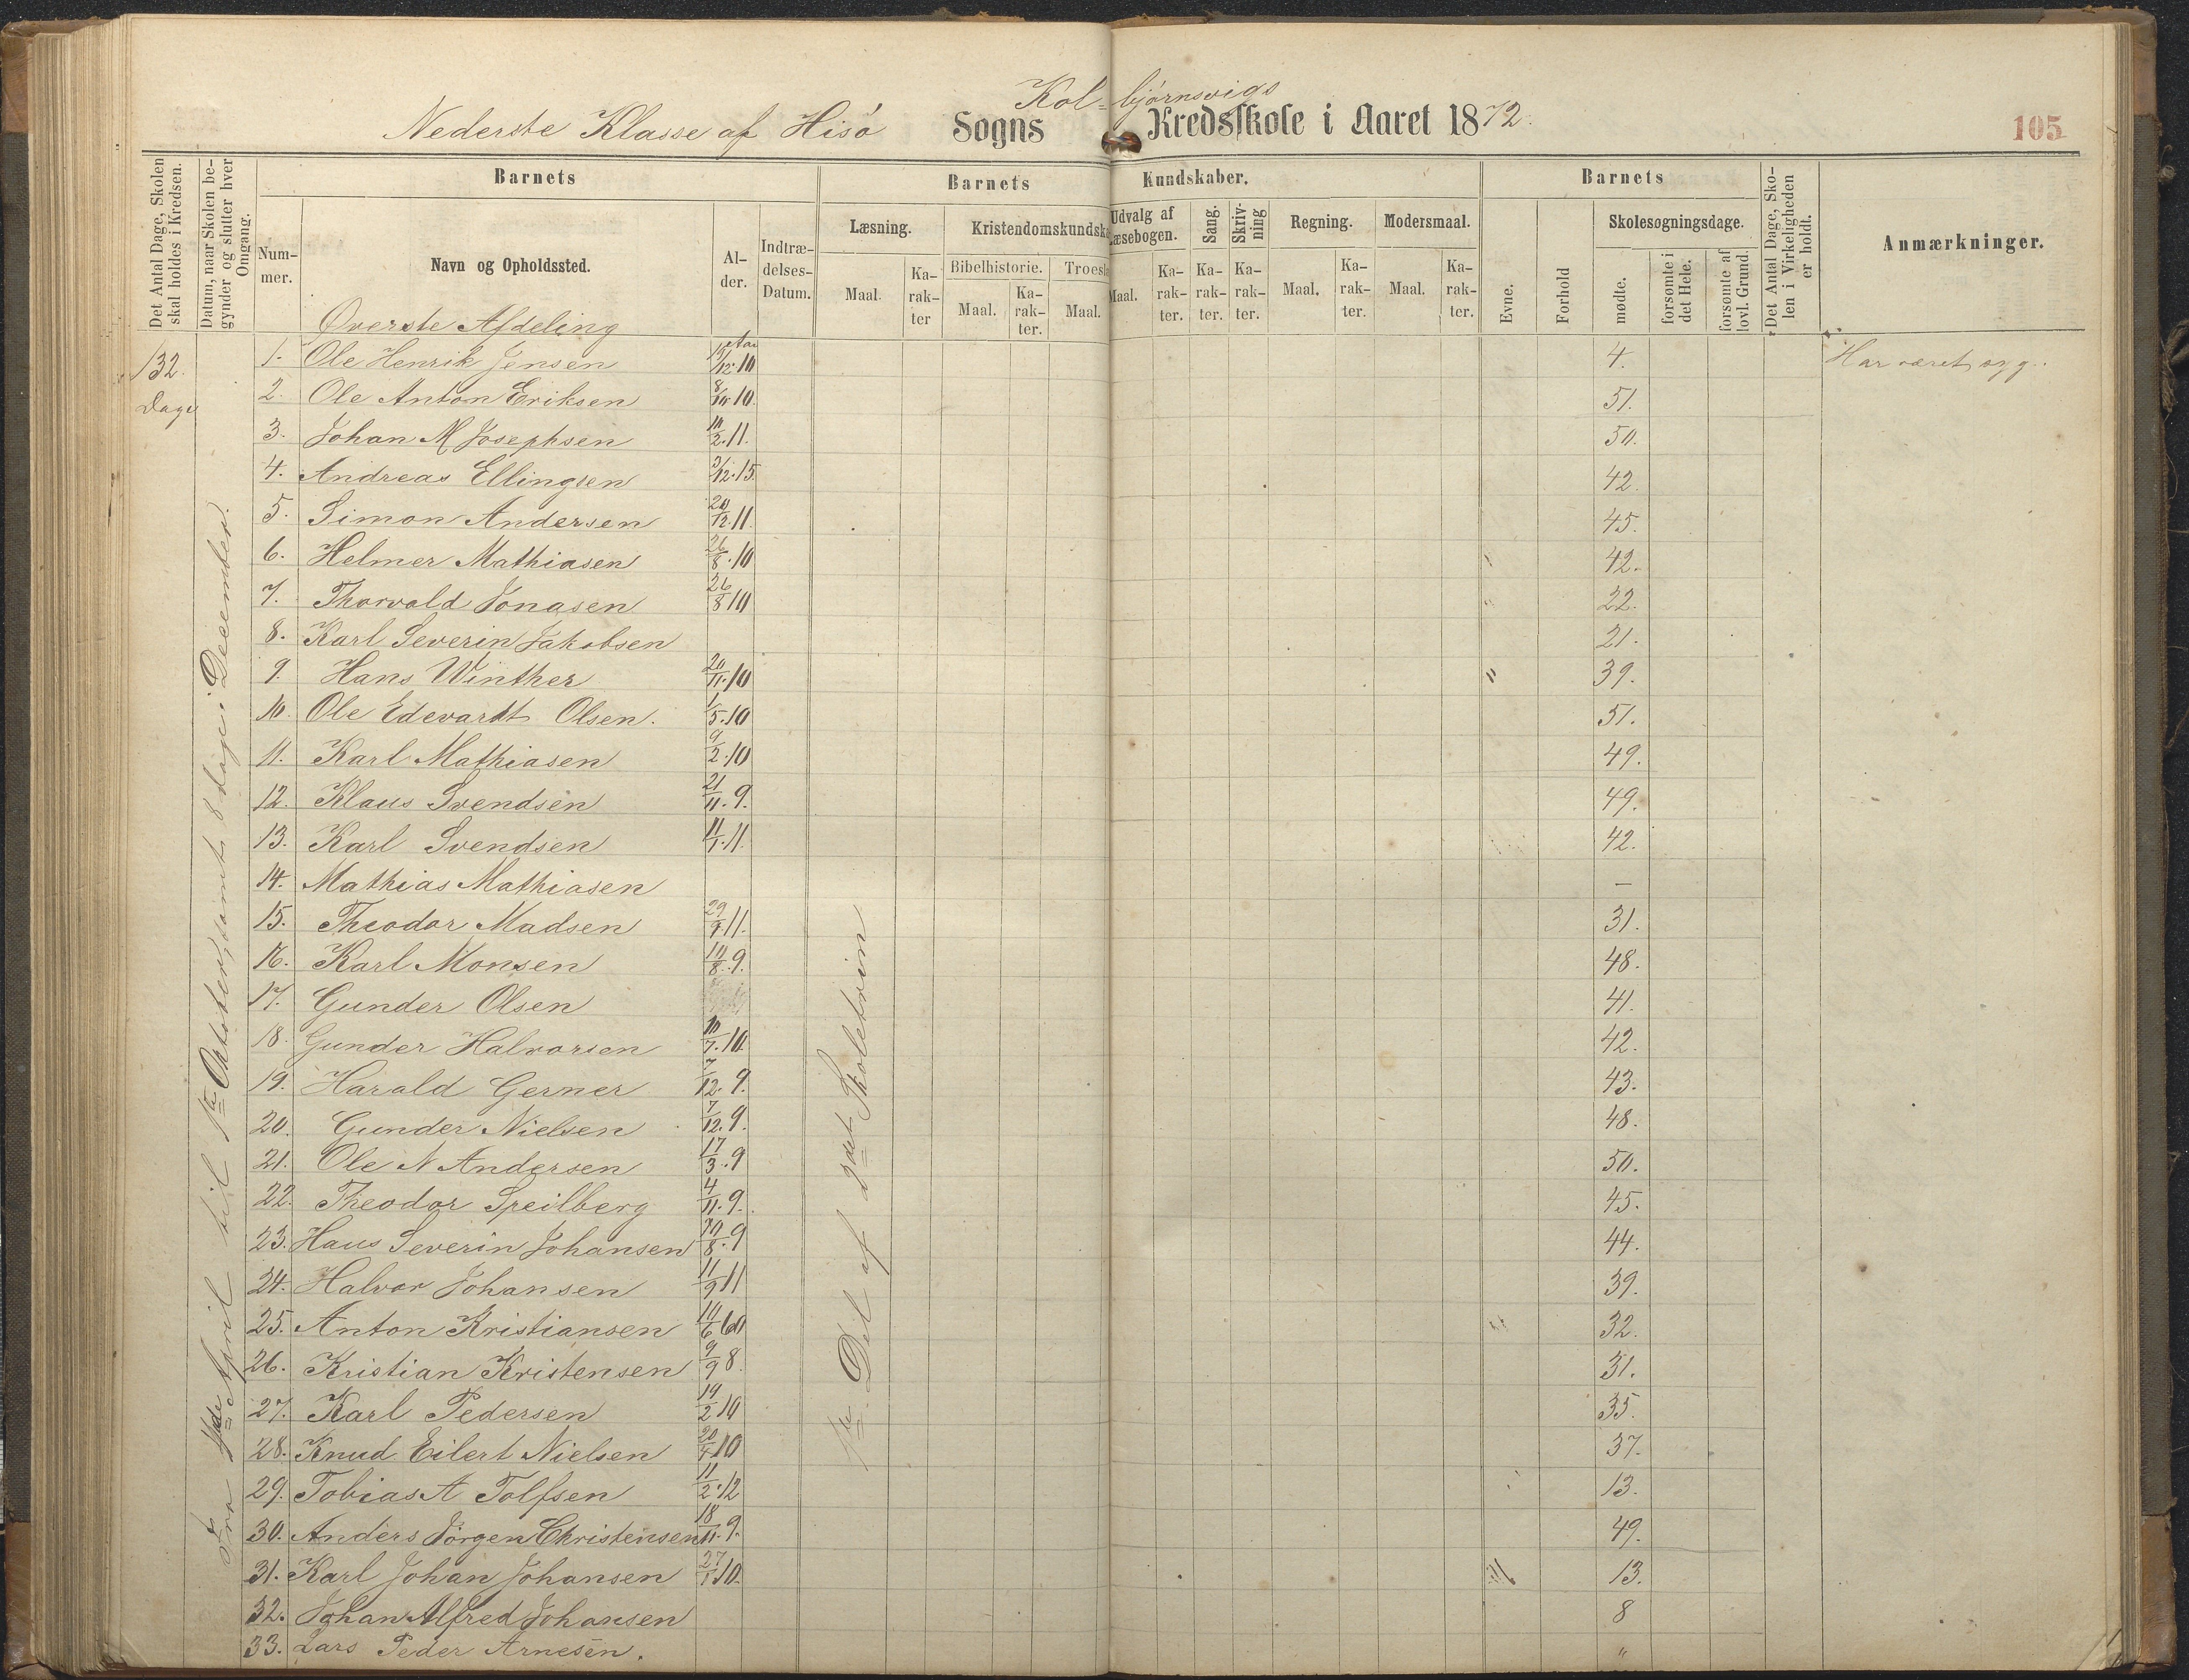 Kol=bjørnsvigs
Nederste Klasse af Hisø Sogns Kredsskole i Aaret 1872.
105
Det Antal Dage, Skolen skal holdes i Kredsen.
Datum, naar Skolen begynder og slutter hver Omgang.
Barnets
Barnets Kundskaber.
Barnets
Det Antal Dage, Skolen i Virkeligheden er holdt.
Anmærkninger.
Nummer.
Navn og Opholdssted.
Alder.
Indtrædelses-Datum.
Læsning.
Kristendomskundska
Udvalg af Læsebogen.
Sang.
Skrivning
Regning.
Modersmaal.
Evne.
Forhold
Skolesøgningsdage.
Bibelhistorie.
Troesl
Maal.
Karakter
Maal.
Karakter.
Maal.
Maal.
Karakter.
Karakter.
Karakter.
Maal.
Karakter.
Maal.
Karakter.
mødte.
forsømte i det Hele.
forsømte af lovl. Grund.
Øverste Afdeling
132. Dage
Fra 1ste April til 1ste Oktober, samt 8 Dage i December.
1ste Del af 2det Skoletrin
1. Ole Henrik Jensen 4. Har været syg.
2. Ole Anton Eriksen 8/10 10. 51.
3. Johan M Josephsen 10/2. 11. 50.
4. Andreas Ellingsen 3/12. 15. 42.
5. Simon Andersen 20/12. 11. 45.
6. Helmer Mathiasen 26/8. 10 42.
7. Thorvald Jonasen 26/8 10 22.
8. Karl Severin Jakobsen 21.
9. Hans Winther 20/11. 10 39.
10. Ole Edevardt Olsen. 1/5. 10 51.
11. Karl Mathiasen 9/2. 10 49.
12. Klaus Svendsen 21/11. 9. 49.
13. Karl Svendsen 11/1. 11. 42.
14. Mathias Mathiasen —
15. Theodor Madsen 29/9 11. 31.
16. Karl Monsen 10/8. 9. 48.
17. Gunder Olsen 41.
18. Gunder Halvorsen 10/7. 10. 42.
19. Harald Gerner 7/12. 9. 43.
20. Gunder Nielsen 7/12. 9. 48.
21. Ole N Andersen 17/3. 9 50.
22. Theodor Speilberg 4/11. 9. 45.
23. Hans Severin Johansen 10/8. 9 44.
24. Halvor Johansen 11/9 11 39.
25. Anton Kristiansen 32.
26. Kristian Kristensen 9/9 8. 31.
27. Karl Pedersen 19/2 10 35.
28. Knud Eilert Nielsen 20/4 10 37.
29. Tobias A Tolfsen 11/2. 12 13.
30. Anders Jørgen Christensen 18/11. 9. 49.
31. Karl Johan Johansen 27/1 10. 13.
32. Johan Alfred Johansen 8
33. Lars Peder Arnesen. "